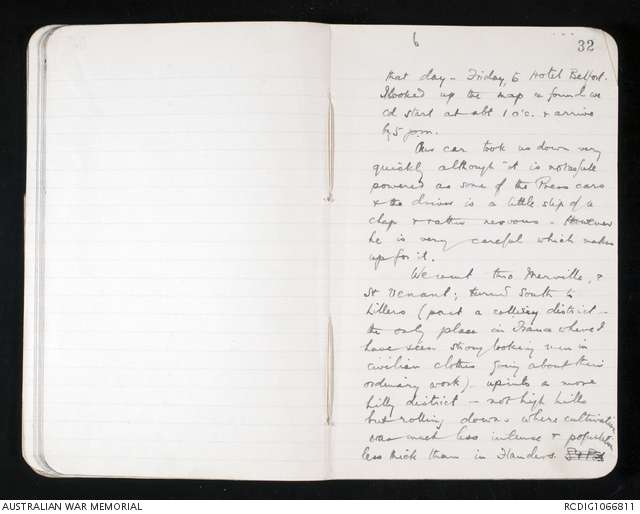 6
32
that day - Friday, to Hotel Belfort.
I looked up the map & found we
cd start at abt 1 o'c. & arrive
by 5 p.m.
Our car took us down very
quickly although it is not as full
powered as some of the Press cars
& the driver is a little slip of a
chap & rather nervous - However
he is very careful which makes
up for it.
We went thro Merville, &
St Venant; turned South to
Lillers (past a colliery district -
the only place in France where I
have seen strong looking men in
civilian clothes going about their
ordinary work) - up into a more
hilly district - not high hills
but rolling downs where cultivation
was much less intense & population
less thick than in Flanders.
AUSTRALIAN WAR MEMORIAL
RCDIG1066811